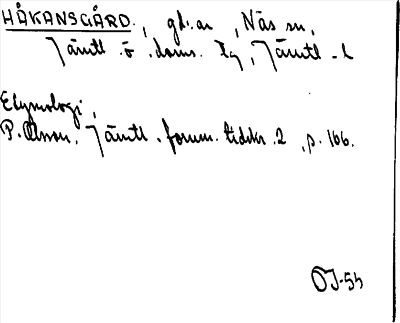 HÅKANSGÅRD, gdar, Näs sn,
Jämtl. ö. doms. tg, Jämtl. l
Etymologi,
P. Olsson, Jämtl. fornm. tidskr. 2, p. 166.
OJ-54